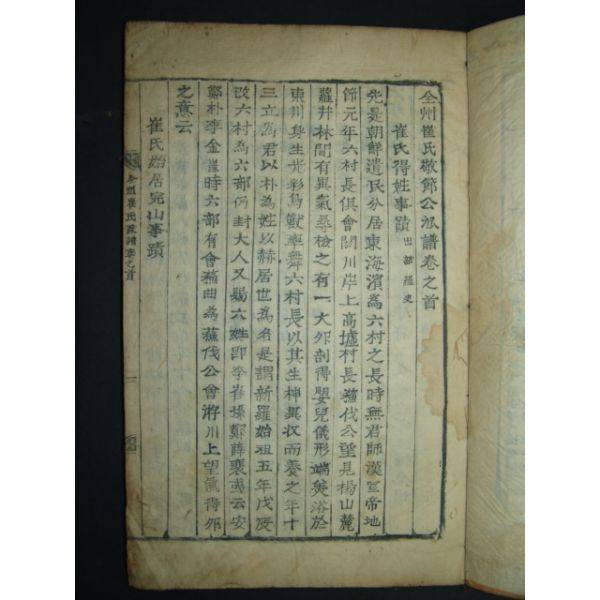 全州崔氏敬節公派譜卷之首
崔氏得姓事蹟 出新羅史
先是朝鮮遺民分居東海濱為六村之長時無君師漢宣帝地
節元年六村長俱會閼川岸上高墟村長蘇伐公望見楊山麓
蘿井林間有異氣尋檢之有一大卵剖得嬰兒儀形端美浴於
東川身生光彩鳥獸率舞六村長以其生神異收而養之年十
三立為君以朴為姓以赫居世為名是謂新羅始祖五年戊辰
改六村為六部仍封大人又賜六姓即李崔孫鄭薛裴或云安
鄭朴李金崔時六部有會蘇曲為蘇伐公會游川上望氣得卵
之意云
崔氏始居完山事蹟
全州崔氏派譜卷之首
一